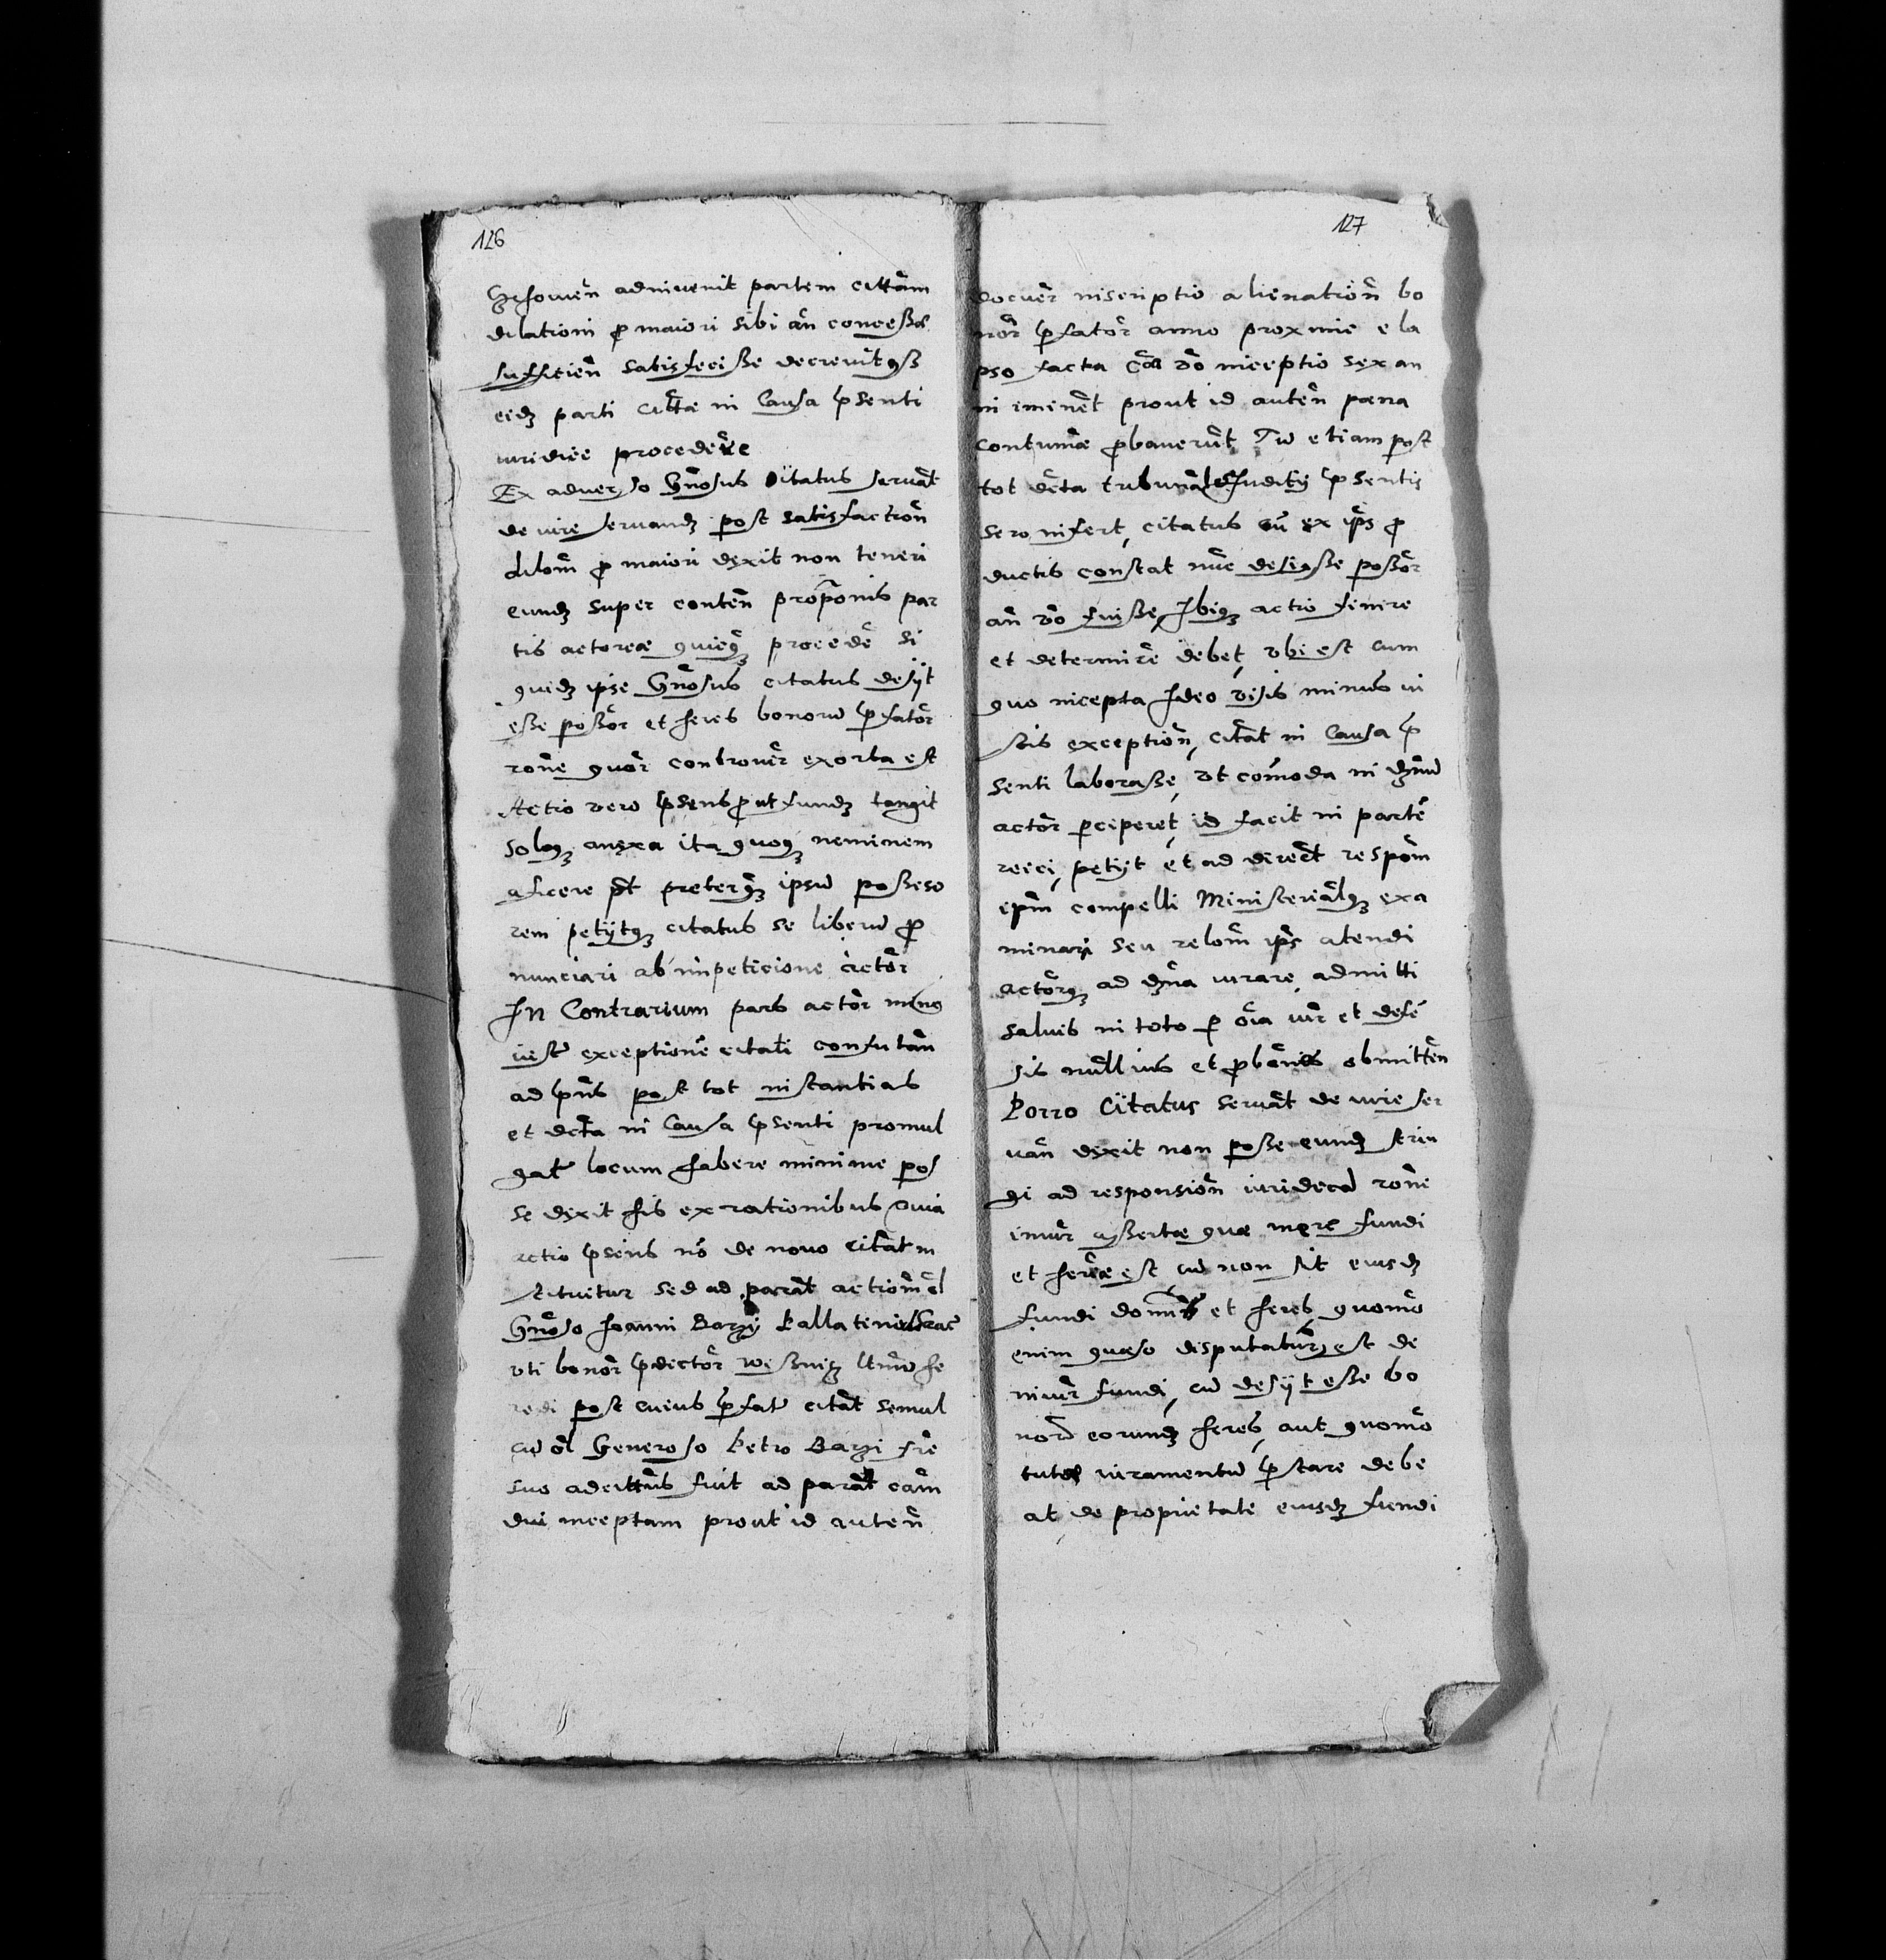 126
adinvenit partem cittam
dilationi p maiori sibi an concessae
sufficien satisfecisse decrevitqz
eidz parti cittae in Causa psenti
iuridice procedere
Ex adverso Gnosus Citatus servat
de iure servandz post satisfaction
dilom p maiori dixit non teneri
eundz super conten propoñis par
tis actoreae quicqz procede si
quidz ipse Gnosus citatus desijt
esse possor et heres bonoru pfator
rone quor controver exorta est
Actio vero psens put fundz tangit
soluqz anexa ita quoqz neminem
aficere pt preterqz ipsu possesso
rem petijtqz citatus se liberu p
nunciari ab impeticione actor
In Contrarium pars actor
exceptione citati confutan
ad pns post tot instantias
et dcta in Causa psenti promul
gat locum habere minime pos
se dixit his ex rationibus quia
actio psens no de novo citat in
stituitur sed ad parat actiom ol
Gnoso Joanni Barzy Pallatenid
uti bonor pdictor he
redi post cuius pfat citat semul
cu ol Generoso Petro Barzi fre
suo adcittus fuit ad parat cam
dui inceptam prout id auten
127
docuer inscriptio alienation bo
nor pfator anno proxime ela
pso facta vo inceptio sex an
ni iminet prout id auten paena
contumae pbaverut Tu etiam post
tot dcta Juditij psentis
sero infert, citatus cu ex ips p
ductis constat nuc desiisse possor
an vo fuisse, Ibiqz actio finire
et determire debet, ubi est cum
quo incepta Ideo visis minus iu
stis exception, citat in Causa p
senti laborasse, ut comoda in dmnu
actor pciperet, id facit in parte
reici, petijt et ad direct respom
epm compelli Ministerialqz exa
minari seu relom ips atendi
actorqz ad dmna iurare admitti
salvis in toto p oia iur et defe
sis nullius et pbonis obmitten
Porro Citatus servat de iure ser
van dixit non posse eundz strin
gi ad responsion iuridica rone
iniur assertae quae mere fundi
et est, cu non sit eiusdz
fundi et heres quomo
enim quaeso disputatur est de
iniur fundi, cu desijt esse bo
noru eorundz heres, aut quomo
iuramentu pstare debe
at de proprietate eiusdz fundi